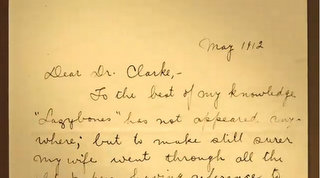 May 1912
Dear Dr. Clarke,-
To the best of my knowledge
"Lazybones" has not appeared any-
where; but to make still surer
my wife went through all the
having reference to